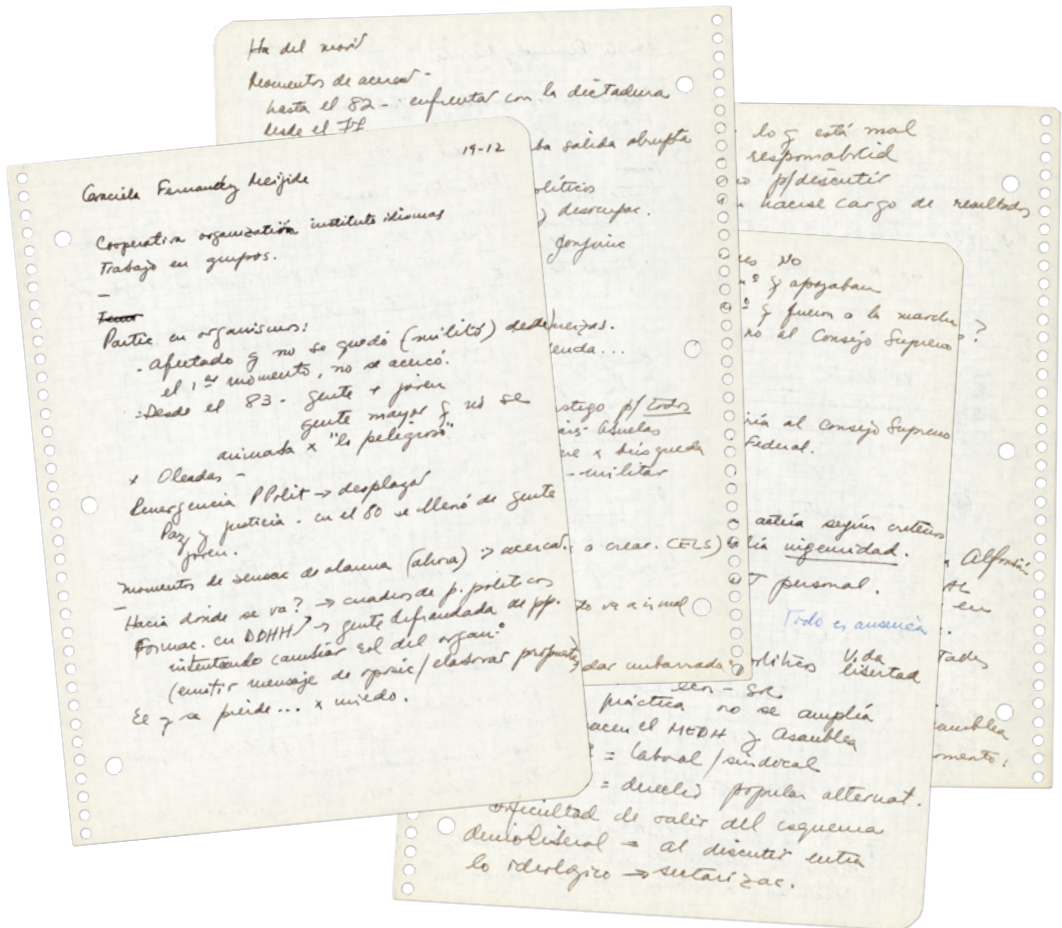 Ha del movi
Momentos de acerca -
hasta el 82 - enfrentar con la dictadura
desde el
ba salida abrupta
olíticos
desocupac.
lo q está mal
responsabilid
p/discutir
hacerse cargo de resultados
19-12
Graciela Fernandez Meijide
Cooperativa organización instituto idiomas
Trabajo en grupos.
-
Partic en organismos:
- afectado q no se quedó (militó) desde
el 1er momento, no se acercó.
- Desde el 83 - gente + joven
gente mayor q no se
animada x "lo peligroso"
x Oleadas -
Emergencia PPolit → desplazar
Paz y justicia - en el 80 se llenó de gente
joven.
momentos de sensac de alarma (ahora) → acercar
-
Hacia donde se va? → cuadros de p. politicos
Formac. en DDHH → gente defraudada de pp.
intentando cambiar rol del organ.°
(emitir mensaje de oposic/elaborar propuestas
Ee y se pierde... x miedo.
enda...
p/ todos
Abuelas
x búsqueda
- militar
o crear. CELS)
to va a ir mal
dar embarrada
No
q apoyaban
q fueron a la marcha ?
no al Consejo Supremo
ría al Consejo Supremo
Federal.
actúa según criterios
ingenuidad.
personal.
Todo es ausencia
olíticos Vida
libertad
práctica no se amplía
hacen el MEDH y Asamblea
= laboral/sindocal
= derecho popular alternat.
Dificultad de salir del esquema
demoliberal = al discutir entra
lo ideologico → sectarizac.
Alfonsín
en
tades
amblea
omento,